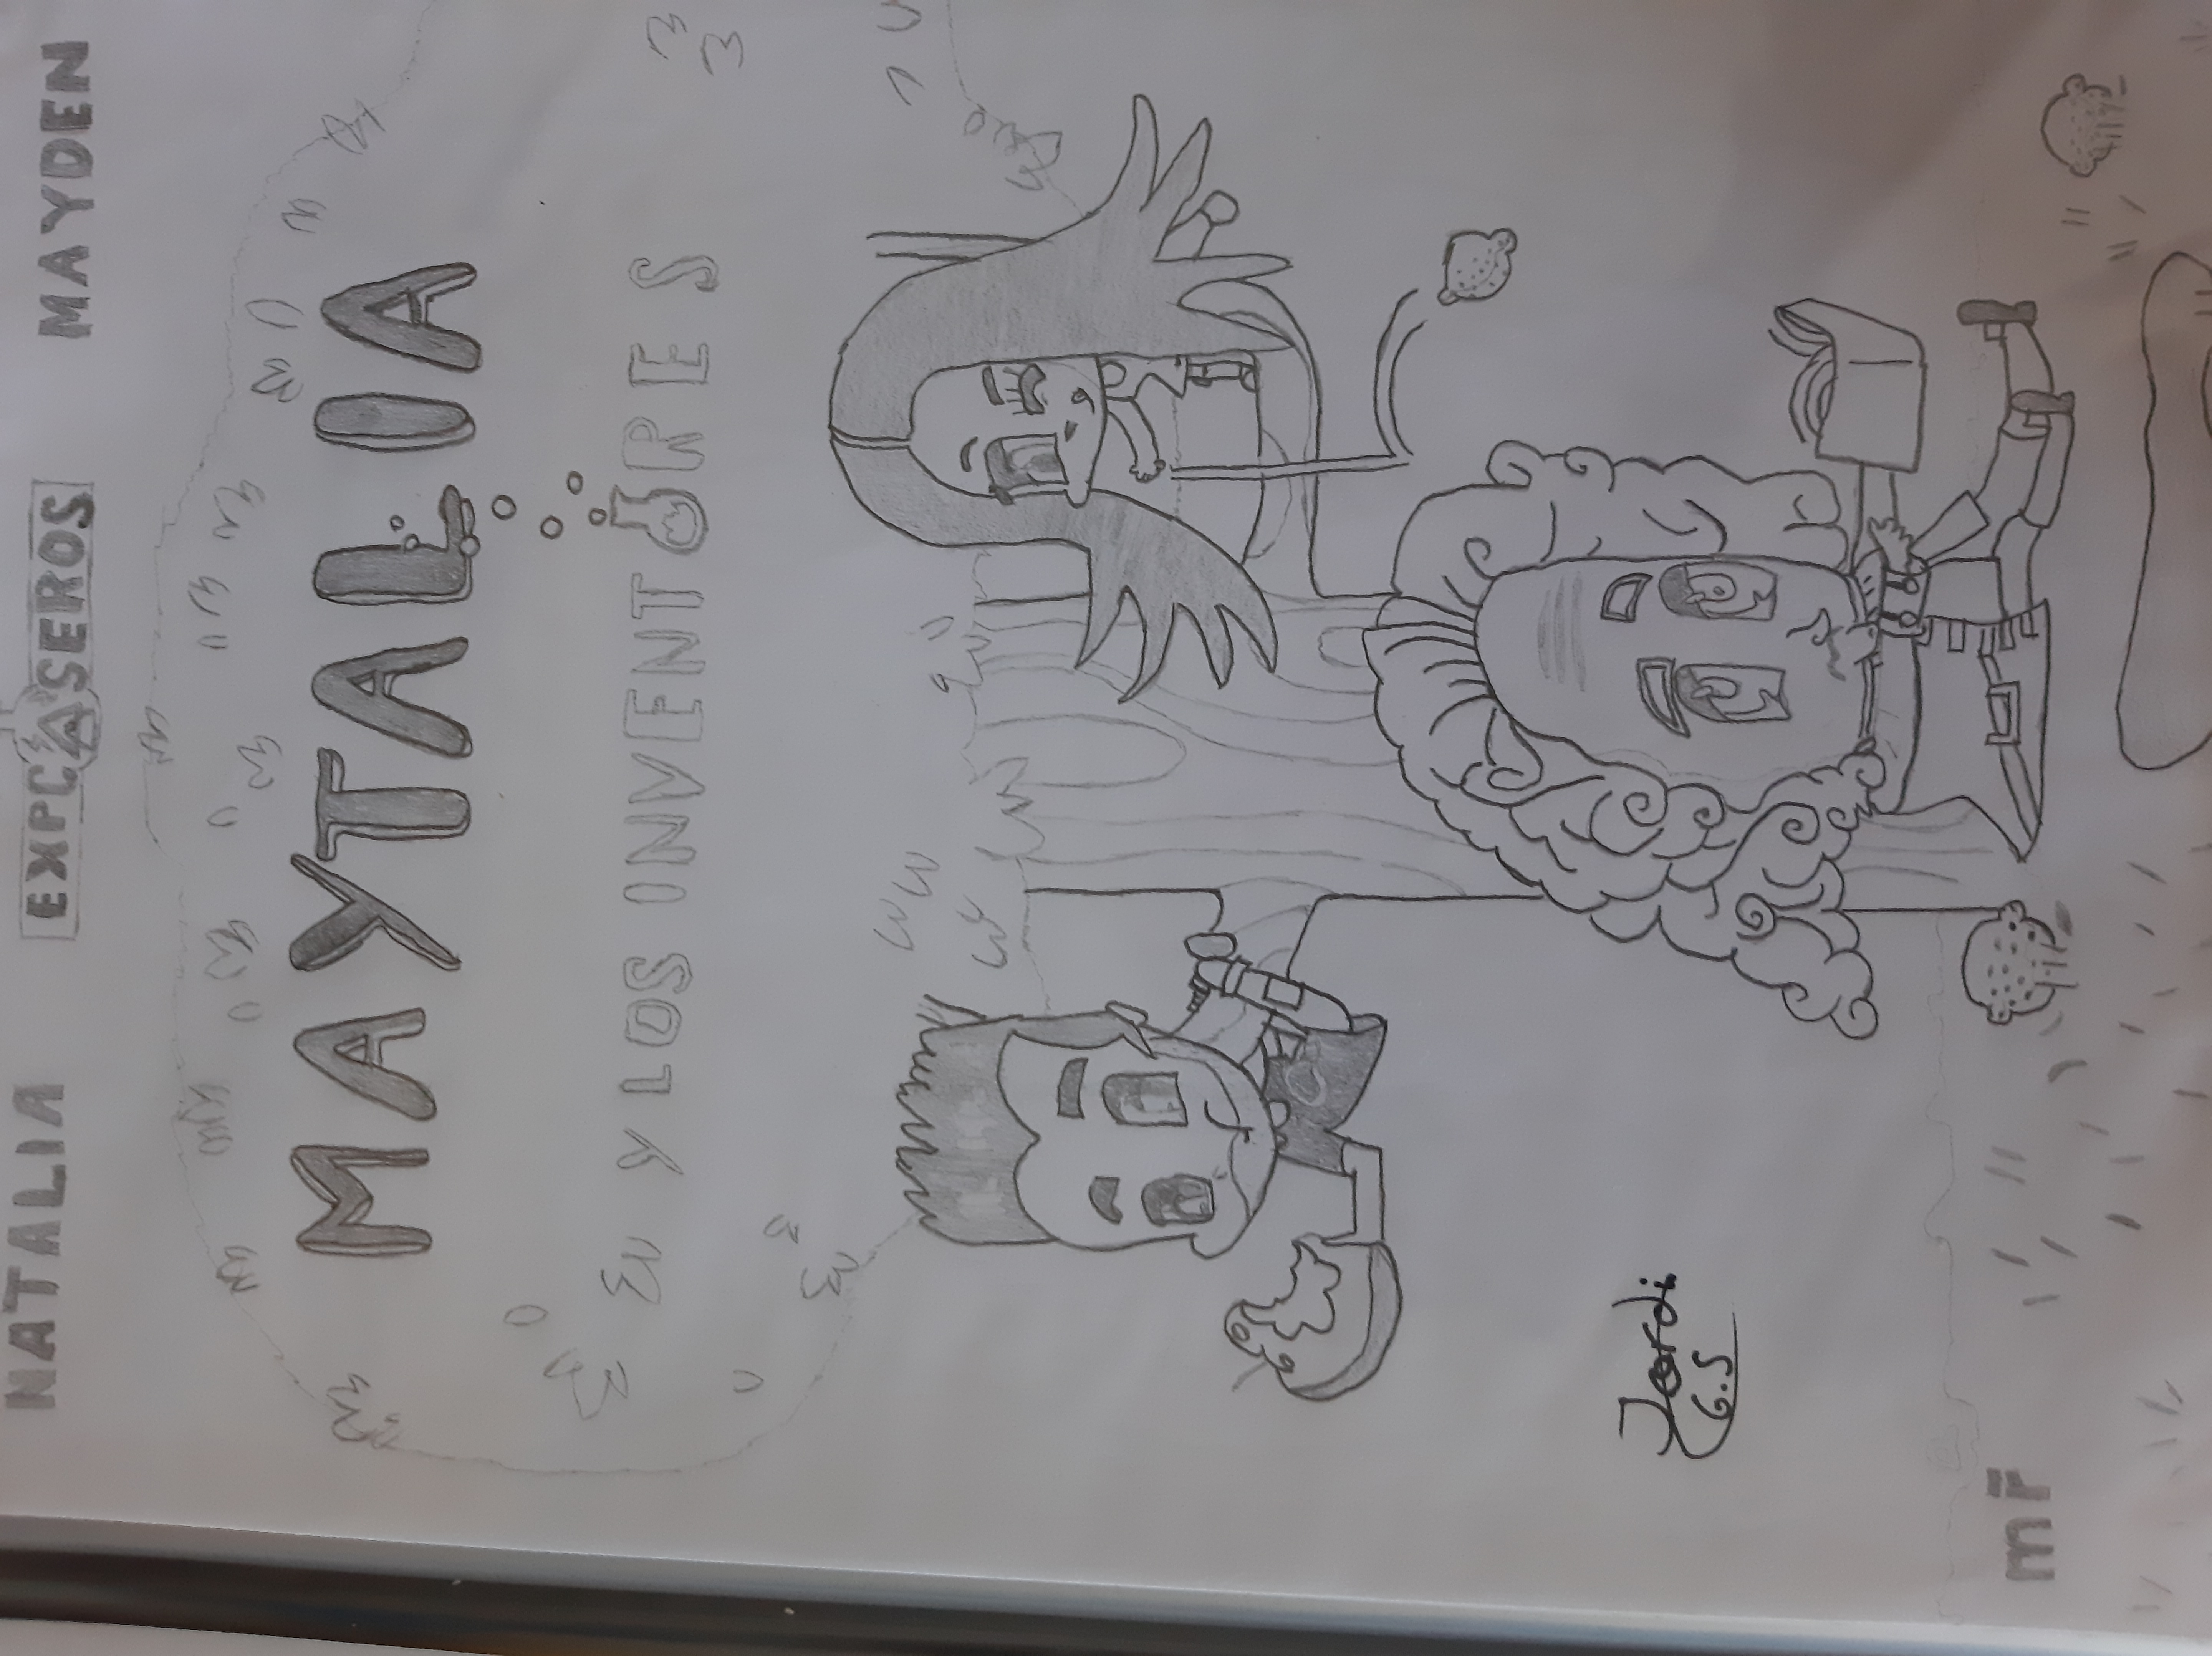 NATALIA EXPCASEROS MAYDEN
MAYTALIA
Y LOS INVENTORES
Jordi
G.S
mr